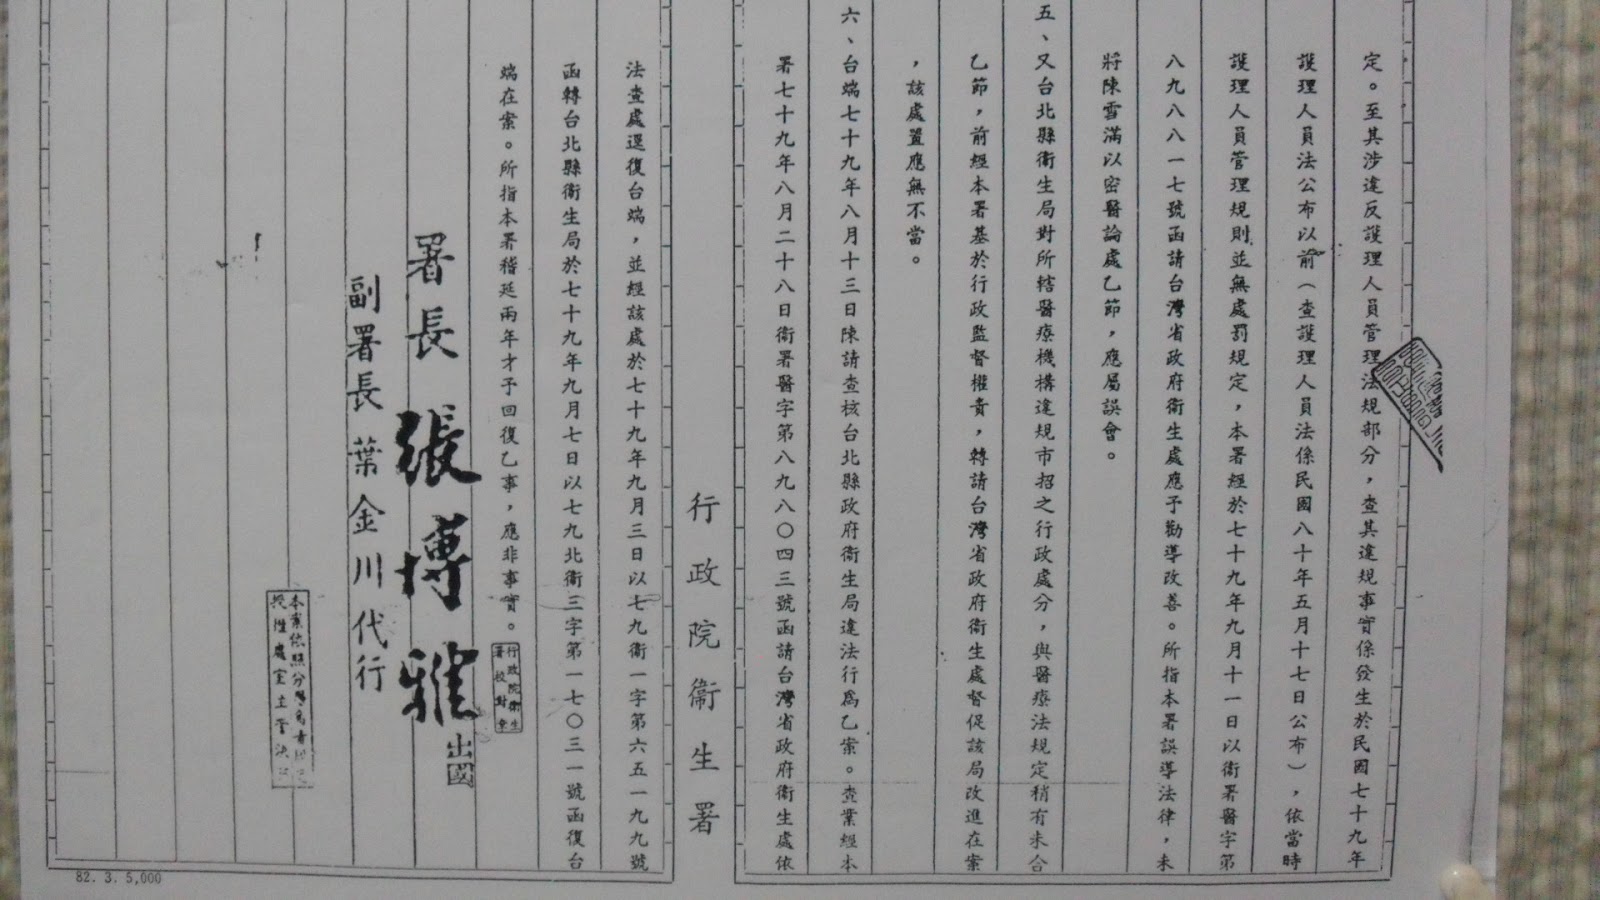 定。至其涉違反護理人員管理法規部分,查其違規事實係發生於民國七十九年
護理人員法公布以前(查護理人員法係民國八十年五月十七日公布),依當時
護理人員管理規則並無處罰規定,本署經於七十九年九月十一日以衛署醫字第
八九八八一七號函請台灣省政府衛生處應予勸導改善。所指本署誤導法律,未
將陳雪滿以密醫論處乙節,應屬誤會。
五、又台北縣衛生局對所轄醫療機構違規市招之行政處分,與醫療法規定稍有未合
乙節,前經本署基於行政監督權責,轉請台灣省政府衛生處督促該局改進在案
,該處置應無不當。
六、台端七十九年八月十三日陳請查核台北縣政府衛生局違法行為乙案。查業經本
署七十九年八月二十八日衛署醫字第八九八〇四三號函請台灣省政府衛生處依
行政院衛生署
法查處逕復台端,並經該處於七十九年九月三日以七九衛一字第六五一九九號
函轉台北縣衛生局於七十九年九月七日以七九北衛三字第一七〇三一號函復台
端在案。所指本署稽延兩年才予回復乙事,應非事實。
行政院衛生
署校對章
署長 張博雅 出國
副署長 葉金川代行
本案依照分層負責
授權處室主管決
82. 3. 5,000